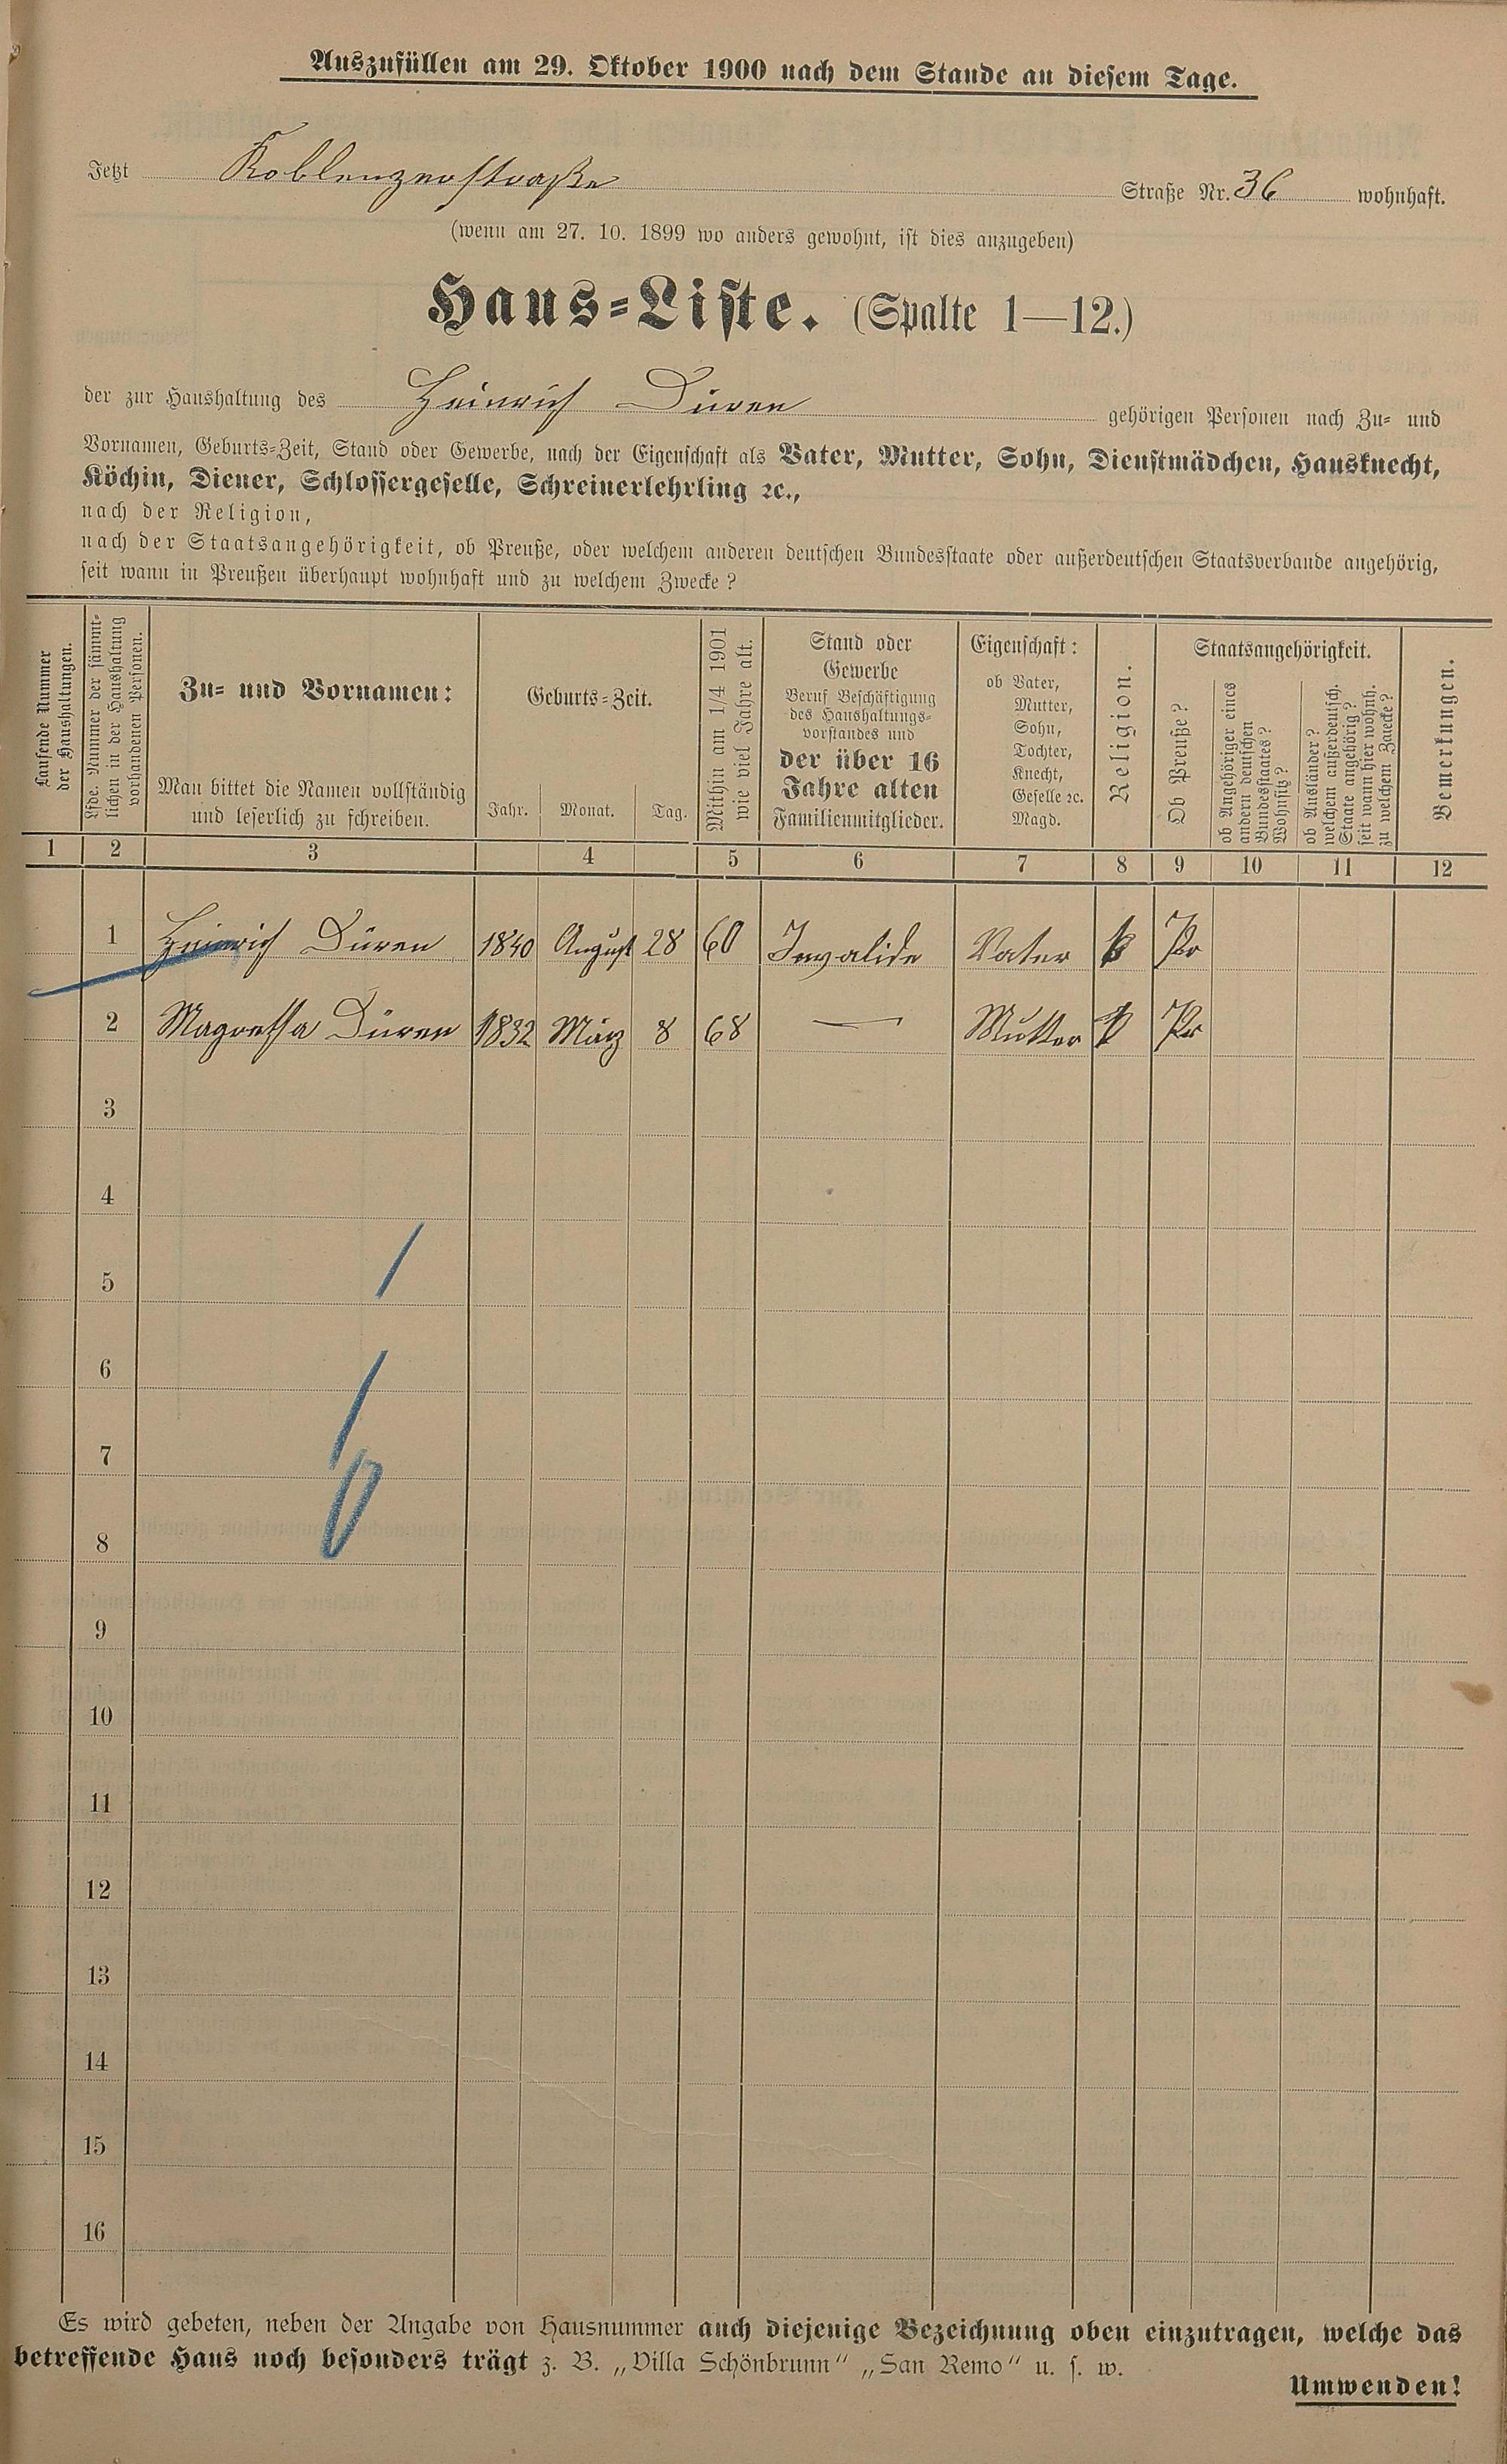 Auszufüllen am 29. Oktober 1900 nach dem Stande an diesem Tage.
Jetzt Koblenzerstraße Straße Nr. 36 wohnhaft.
(wenn am 27. 10. 1899 wo anders gewohnt, ist dies anzugeben)
Haus-Liste. (Spalte 1—12.)
der zur Haushaltung des Heinrich Düren gehörigen Personen nach Zu- und
Vornamen, Geburts-Zeit, Stand oder Gewerbe, nach der Eigenschaft als Vater, Mutter, Sohn, Dienstmädchen, Hausknecht,
Köchin, Diener, Schlossergeselle, Schreinerlehrling ꝛc.,
nach der Religion,
nach der Staatsangehörigkeit, ob Preuße, oder welchem anderen deutschen Bundesstaate oder außerdeutschen Staatsverbande angehörig,
seit wann in Preußen überhaupt wohnhaft und zu welchem Zwecke?
Laufende Nummer
der Haushaltungen.
Lfde. Nummer der sämmt-
lichen in der Haushaltung
vorhandenen Personen.
Zu- und Vornamen:
Man bittet die Namen vollständig
und leserlich zu schreiben.
Geburts-Zeit.
Jahr. Monat. Tag.
Mithin am 1/4 1901
wie viel Jahre alt.
Stand oder
Gewerbe
Beruf Beschäftigung
des Haushaltungs-
vorstandes und
der über 16
Jahre alten
Familienmitglieder.
Eigenschaft:
ob Vater,
Mutter,
Sohn,
Tochter,
Knecht,
Geselle ꝛc.
Magd.
Religion.
Staatsangehörigkeit.
Ob Preuße?
ob Angehöriger eines
andern deutschen
Bundesstaates?
Wohnsitz?
ob Ausländer?
welchem außerdeutsch.
Staate angehörig?
seit wann hier wohnh.
zu welchem Zwecke?
Bemerkungen.
1 2 3 4 5 6 7 8 9 10 11 12
1 Heinrich Düren 1840 August 28 60 Invalide Vater k Pr
2 Magretha Düren 1832 März 8 68 — Mutter k Pr
3
4
5
6
7
8
9
10
11
12
13
14
15
16
Es wird gebeten, neben der Angabe von Hausnummer auch diejenige Bezeichnung oben einzutragen, welche das
betreffende Haus noch besonders trägt z. B. „Villa Schönbrunn“ „San Remo“ u. s. w.
Umwenden!